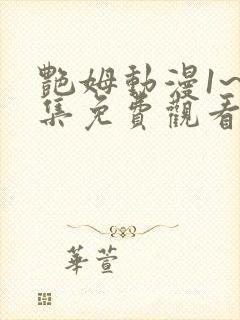 艷姆動漫1~
集免費觀看
華萱